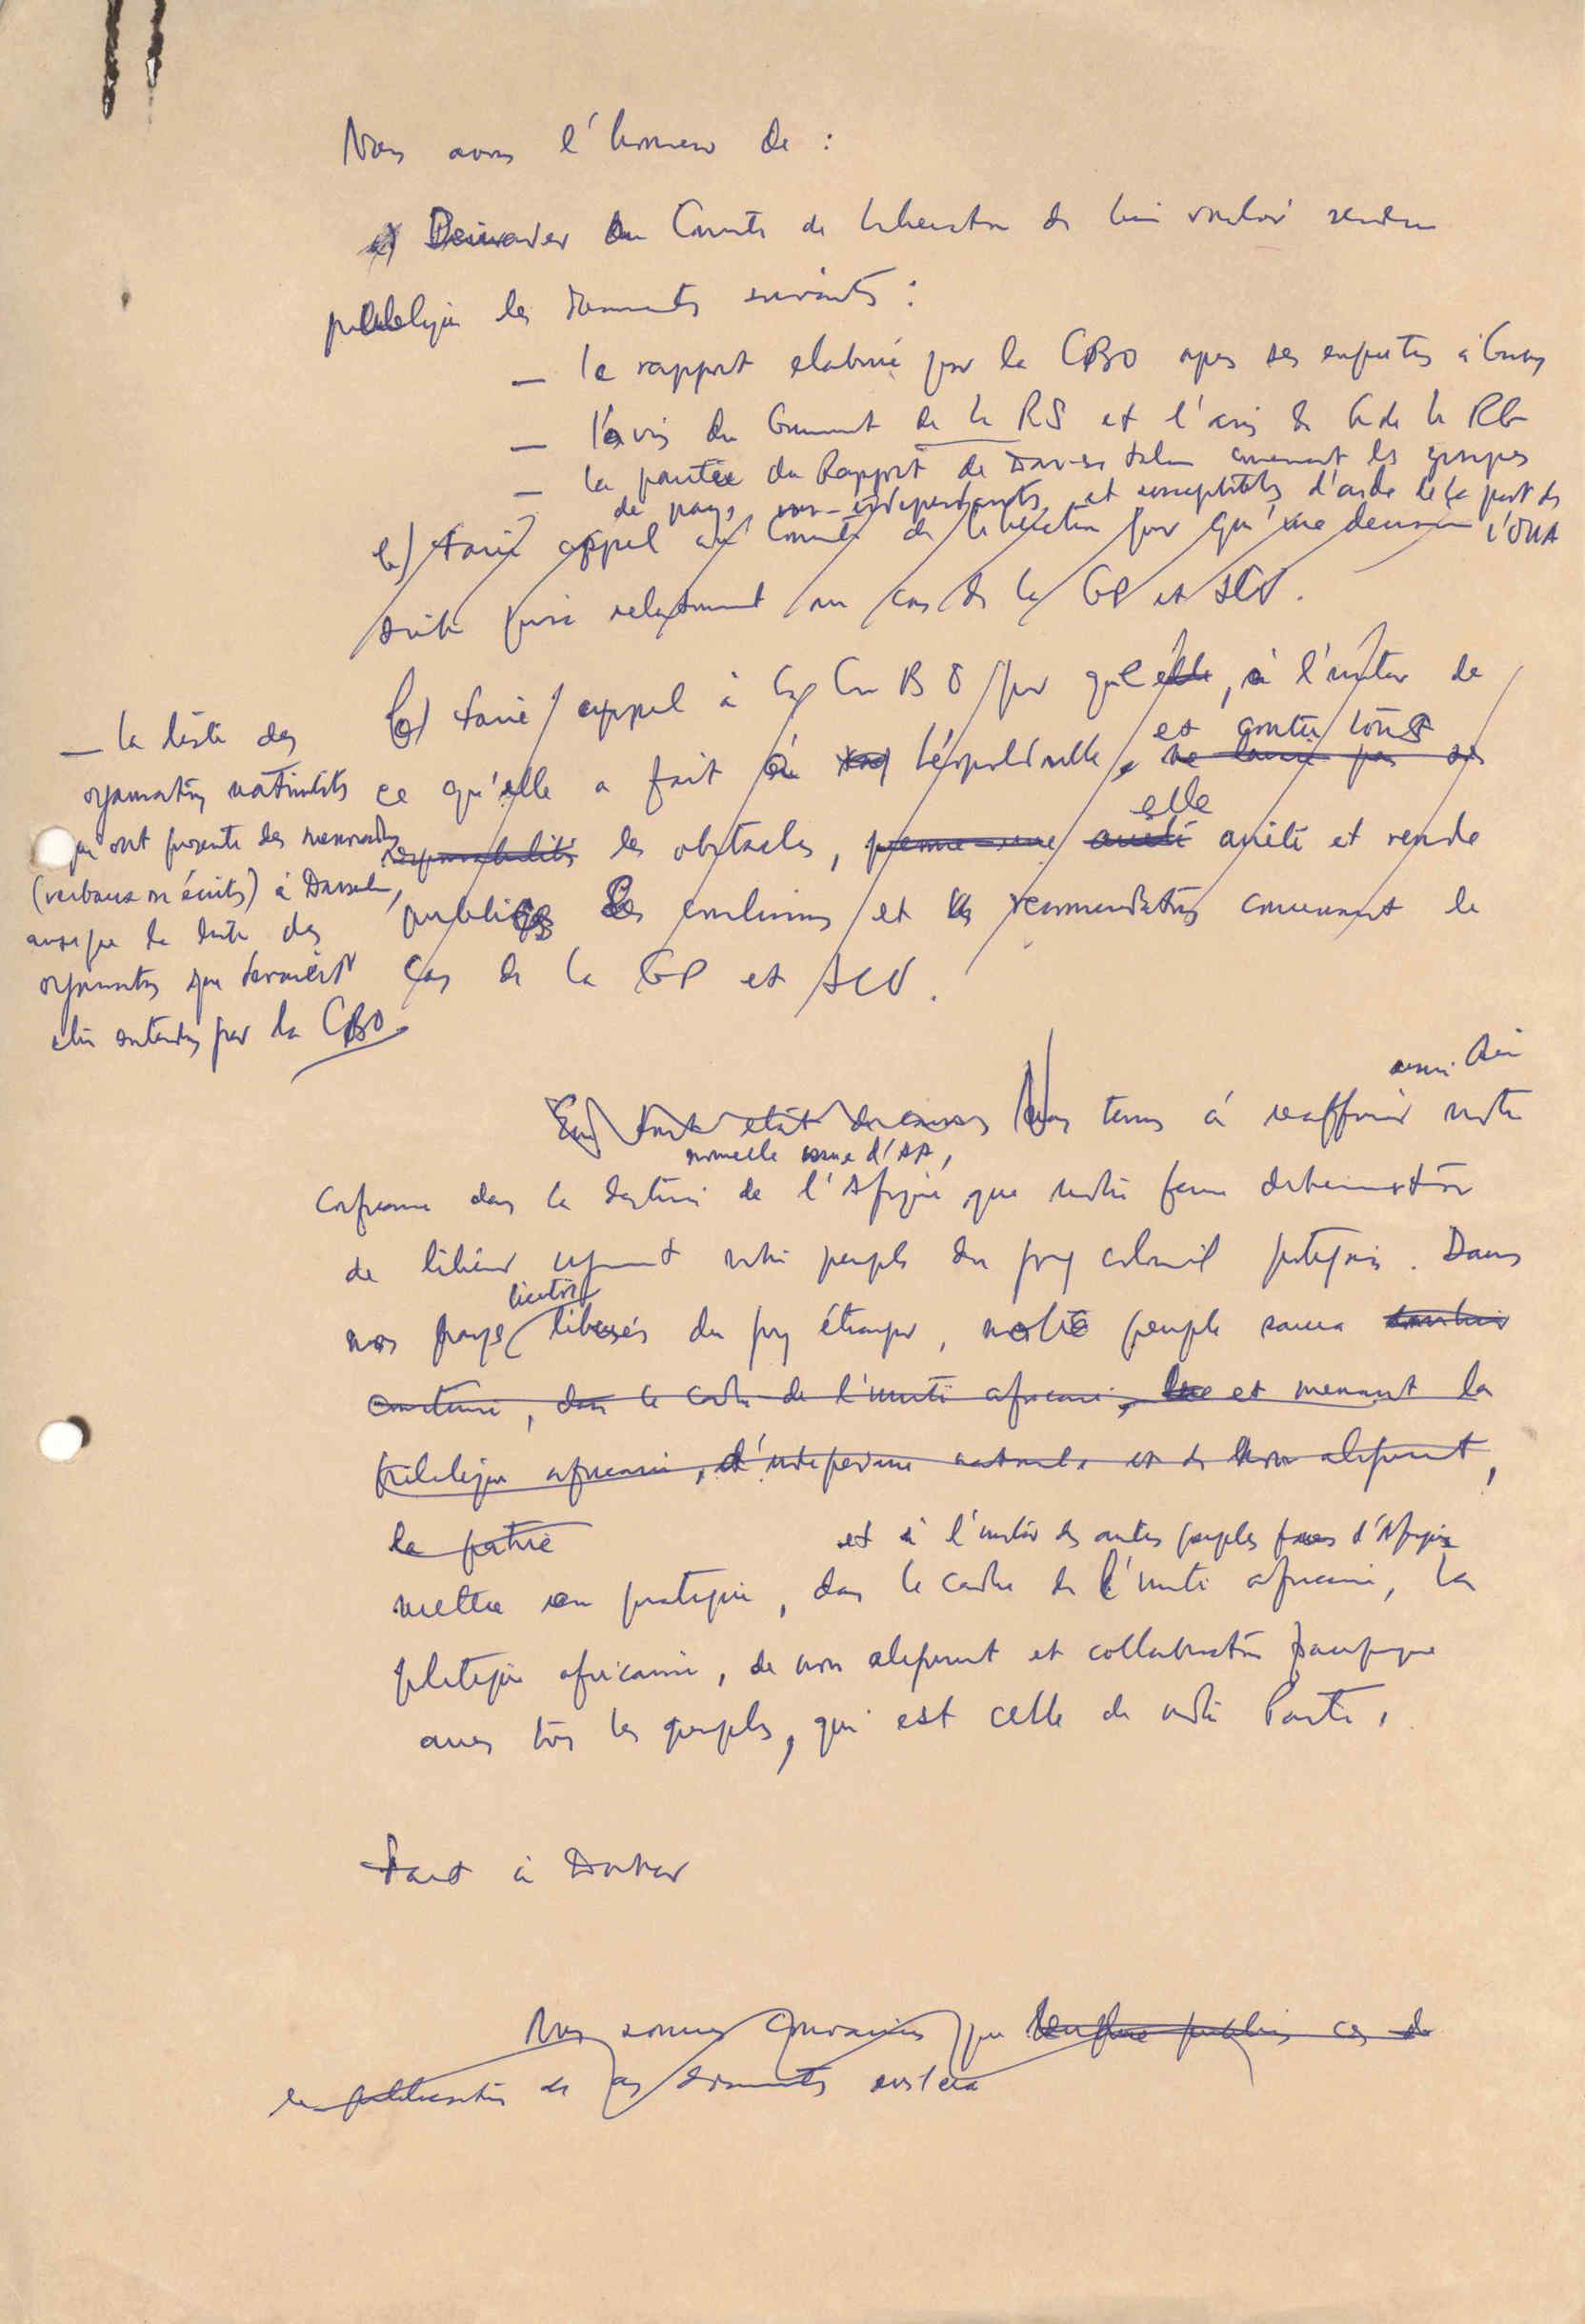 Nous avons l'honneur de :
a) Demander au Comité de libération de bien vouloir rendre
publique les documents suivants :
— le rapport elaboré par la CBO apres ses enquêtes à
— l'avis du de la RS et l'avis de la RG
— la partie du Rapport de Dar-es-Salam concernant les groupes
de pays non-independants et susceptibles d'aide de la part de
l'OUA
b) faire appel au Comité de libération pour qu'une decision
soit prise relativement au cas de la GP et ICV.
b) faire appel à la BO pour que elle, à l'instar de
ce qu'elle a fait à Léopoldville, ne pas ses
et contre tous
elle
responsabilités les obstacles, arrêté arrête et rende
publiques les conclusions et les recommandations concernant le
cas de la GP et ICV.
— la liste des
organisations nationalistes
qui ont présenté des memorandums
(verbaux ou écrits) à Dar-es-Salam,
ainsi que la liste des
organisations que seraient
être entendues par la CBO
En tout état de cause Nous tenons à reaffirmer notre
aussi bien
nouvelle
confiance dans le destin de l'Afrique que notre ferme determination
de libérer notre peuple du joug colonial portugais. Dans
nos pays libérés du joug étranger, notre peuple saura
bientôt
construire, dans le cadre de l'unité africaine, et menant la
politique africaine, d'independance nationale et de non alignement,
la patrie
et à l'instar des autres peuples d'Afrique
mettre en pratique, dans le cadre de l'unité africaine, la
politique africaine, de non alignement et collaboration pacifique
avec tous les peuples, qui est celle de notre Parti.
Fait à Dakar
Nous sommes convaincus que ces
la publication de ces documents